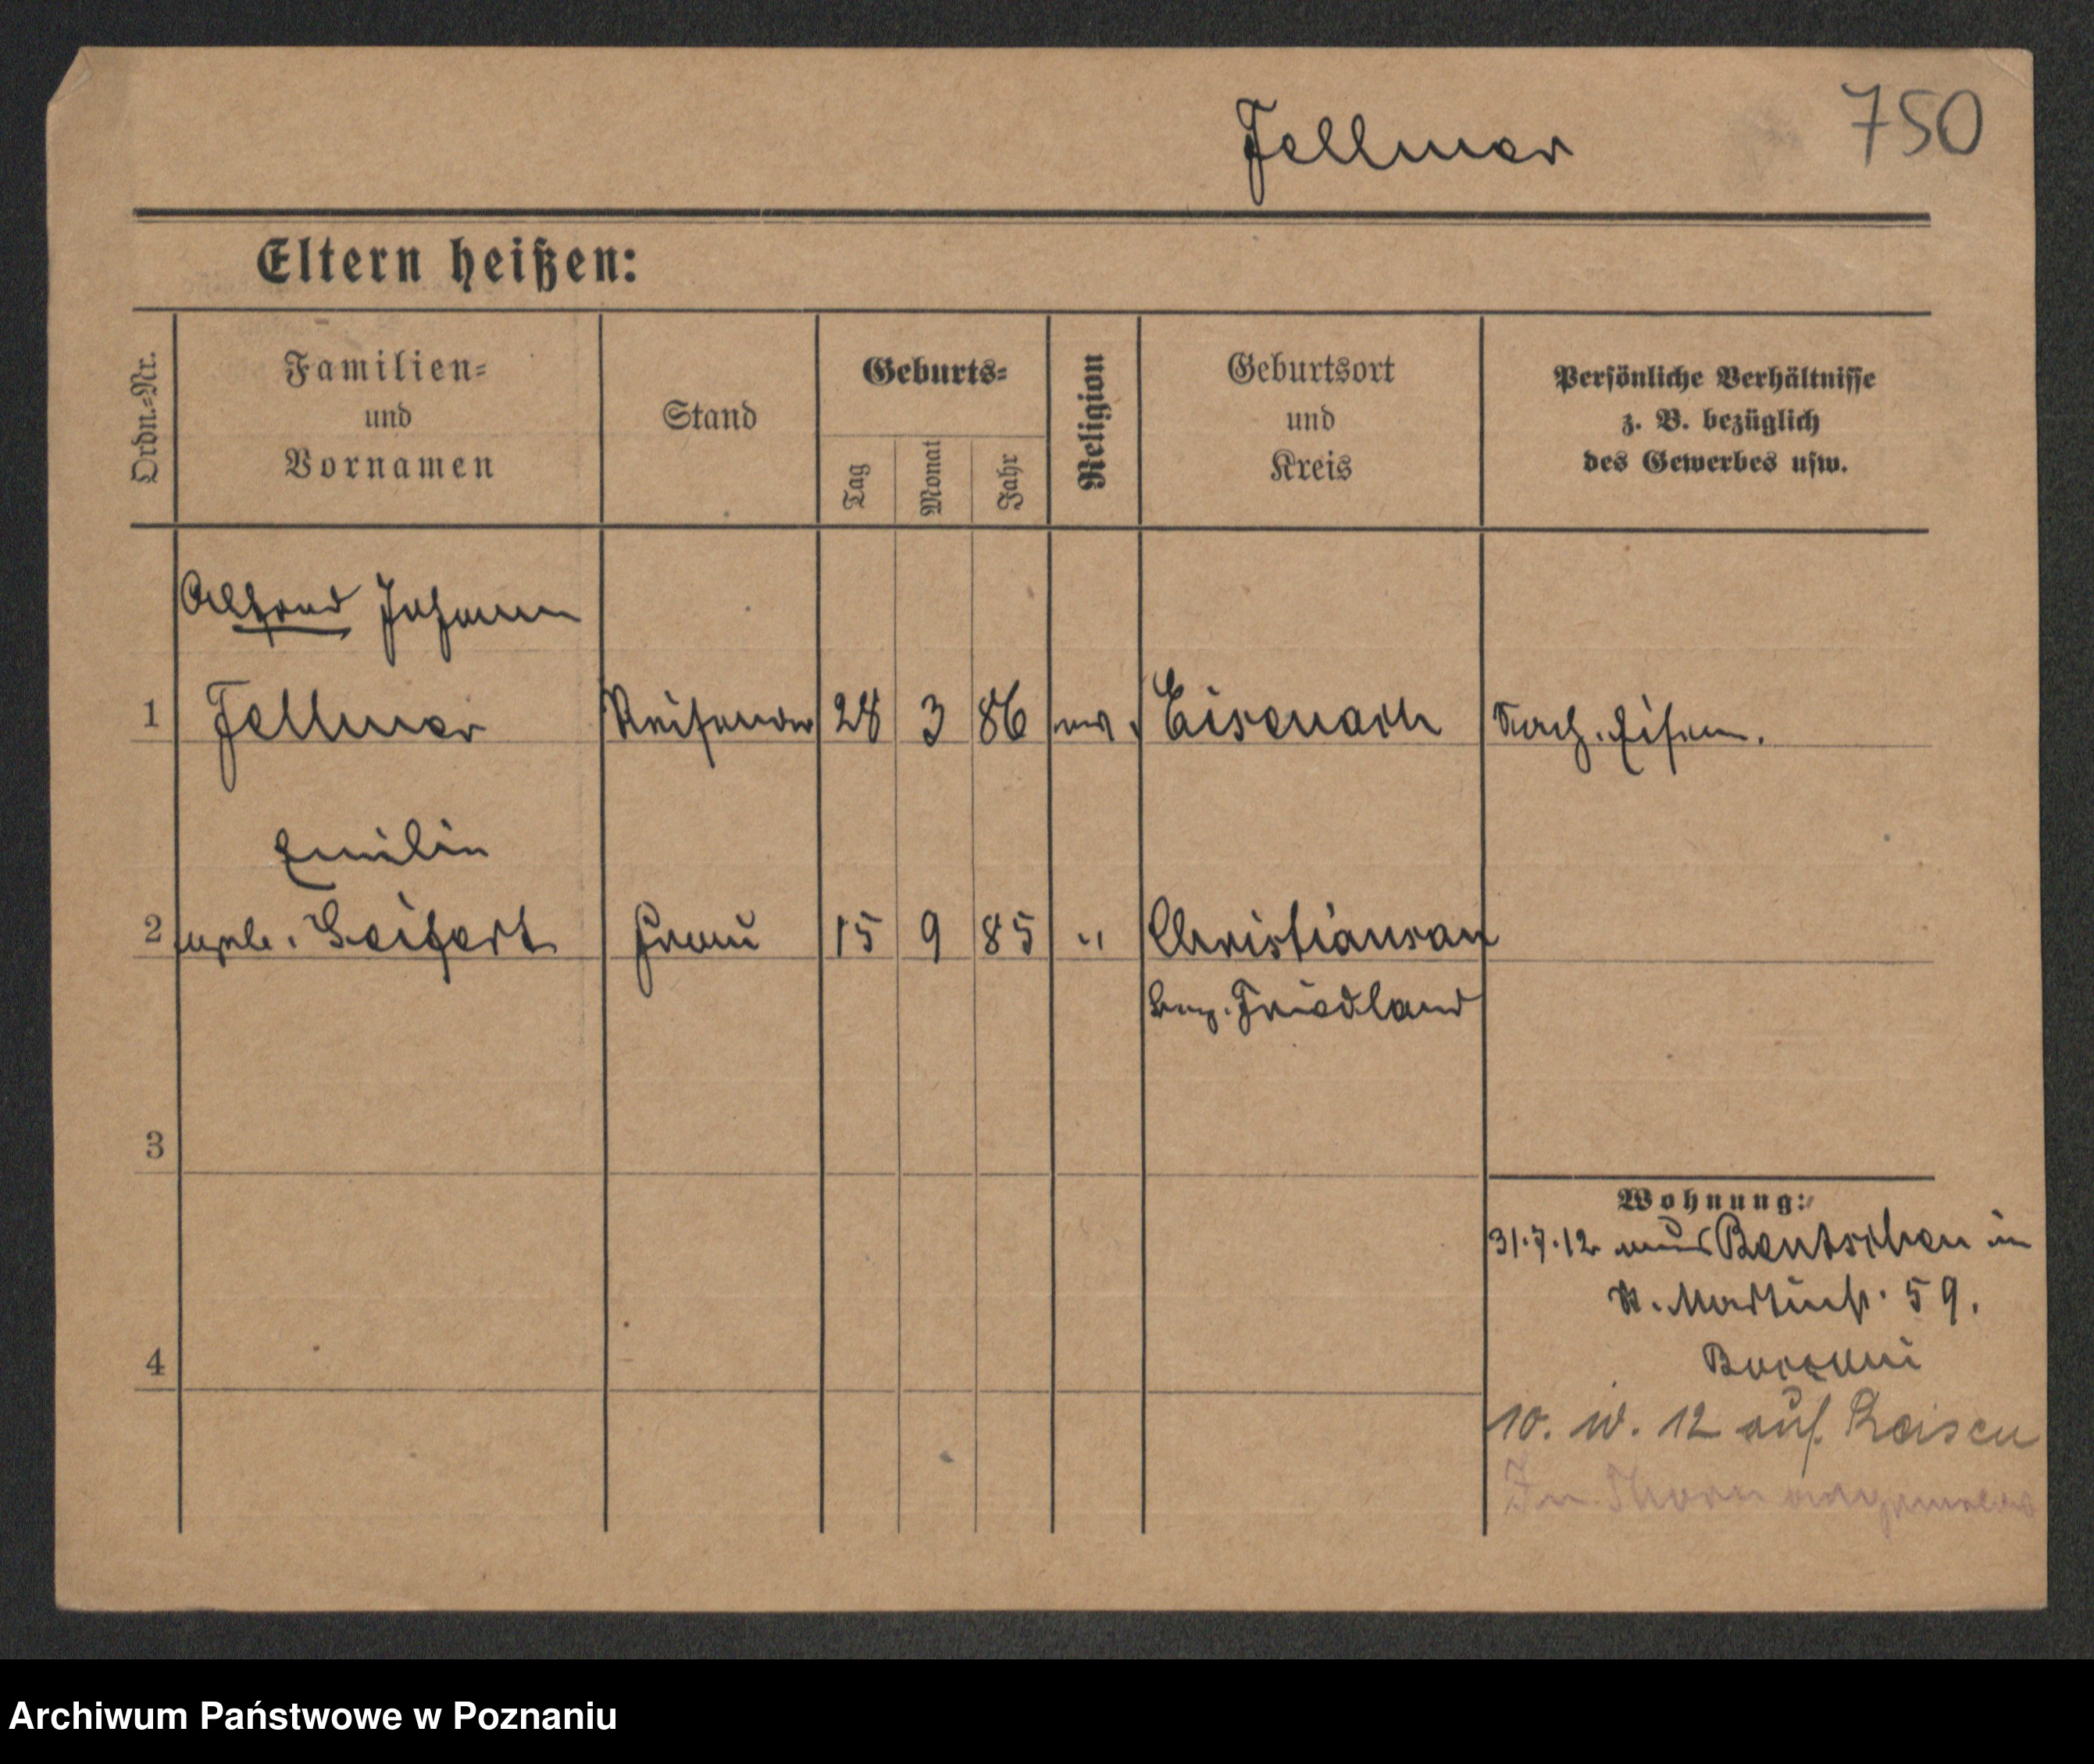 Fellmer 750
Eltern heißen:
Ordn.=Nr.
Familien=
und
Vornamen
Stand
Geburts=
Tag
Monat
Jahr
Religion
Geburtsort
und
Kreis
Persönliche Verhältnisse
z. B. bezüglich
des Gewerbes usw.
Alfred Johann
1 Fellmer Reisender 28 3 86 ev. Eisenach
Emilie
2 geb. Seifert Frau 15 9 85 " Christiansau
bez. Friedland
3
Wohnung:
31.7.12 aus Bentschen in
St. Martinstr. 59.
4
10. IV. 12 auf Reisen
In Thorn angemeldet
Archiwum Państwowe w Poznaniu